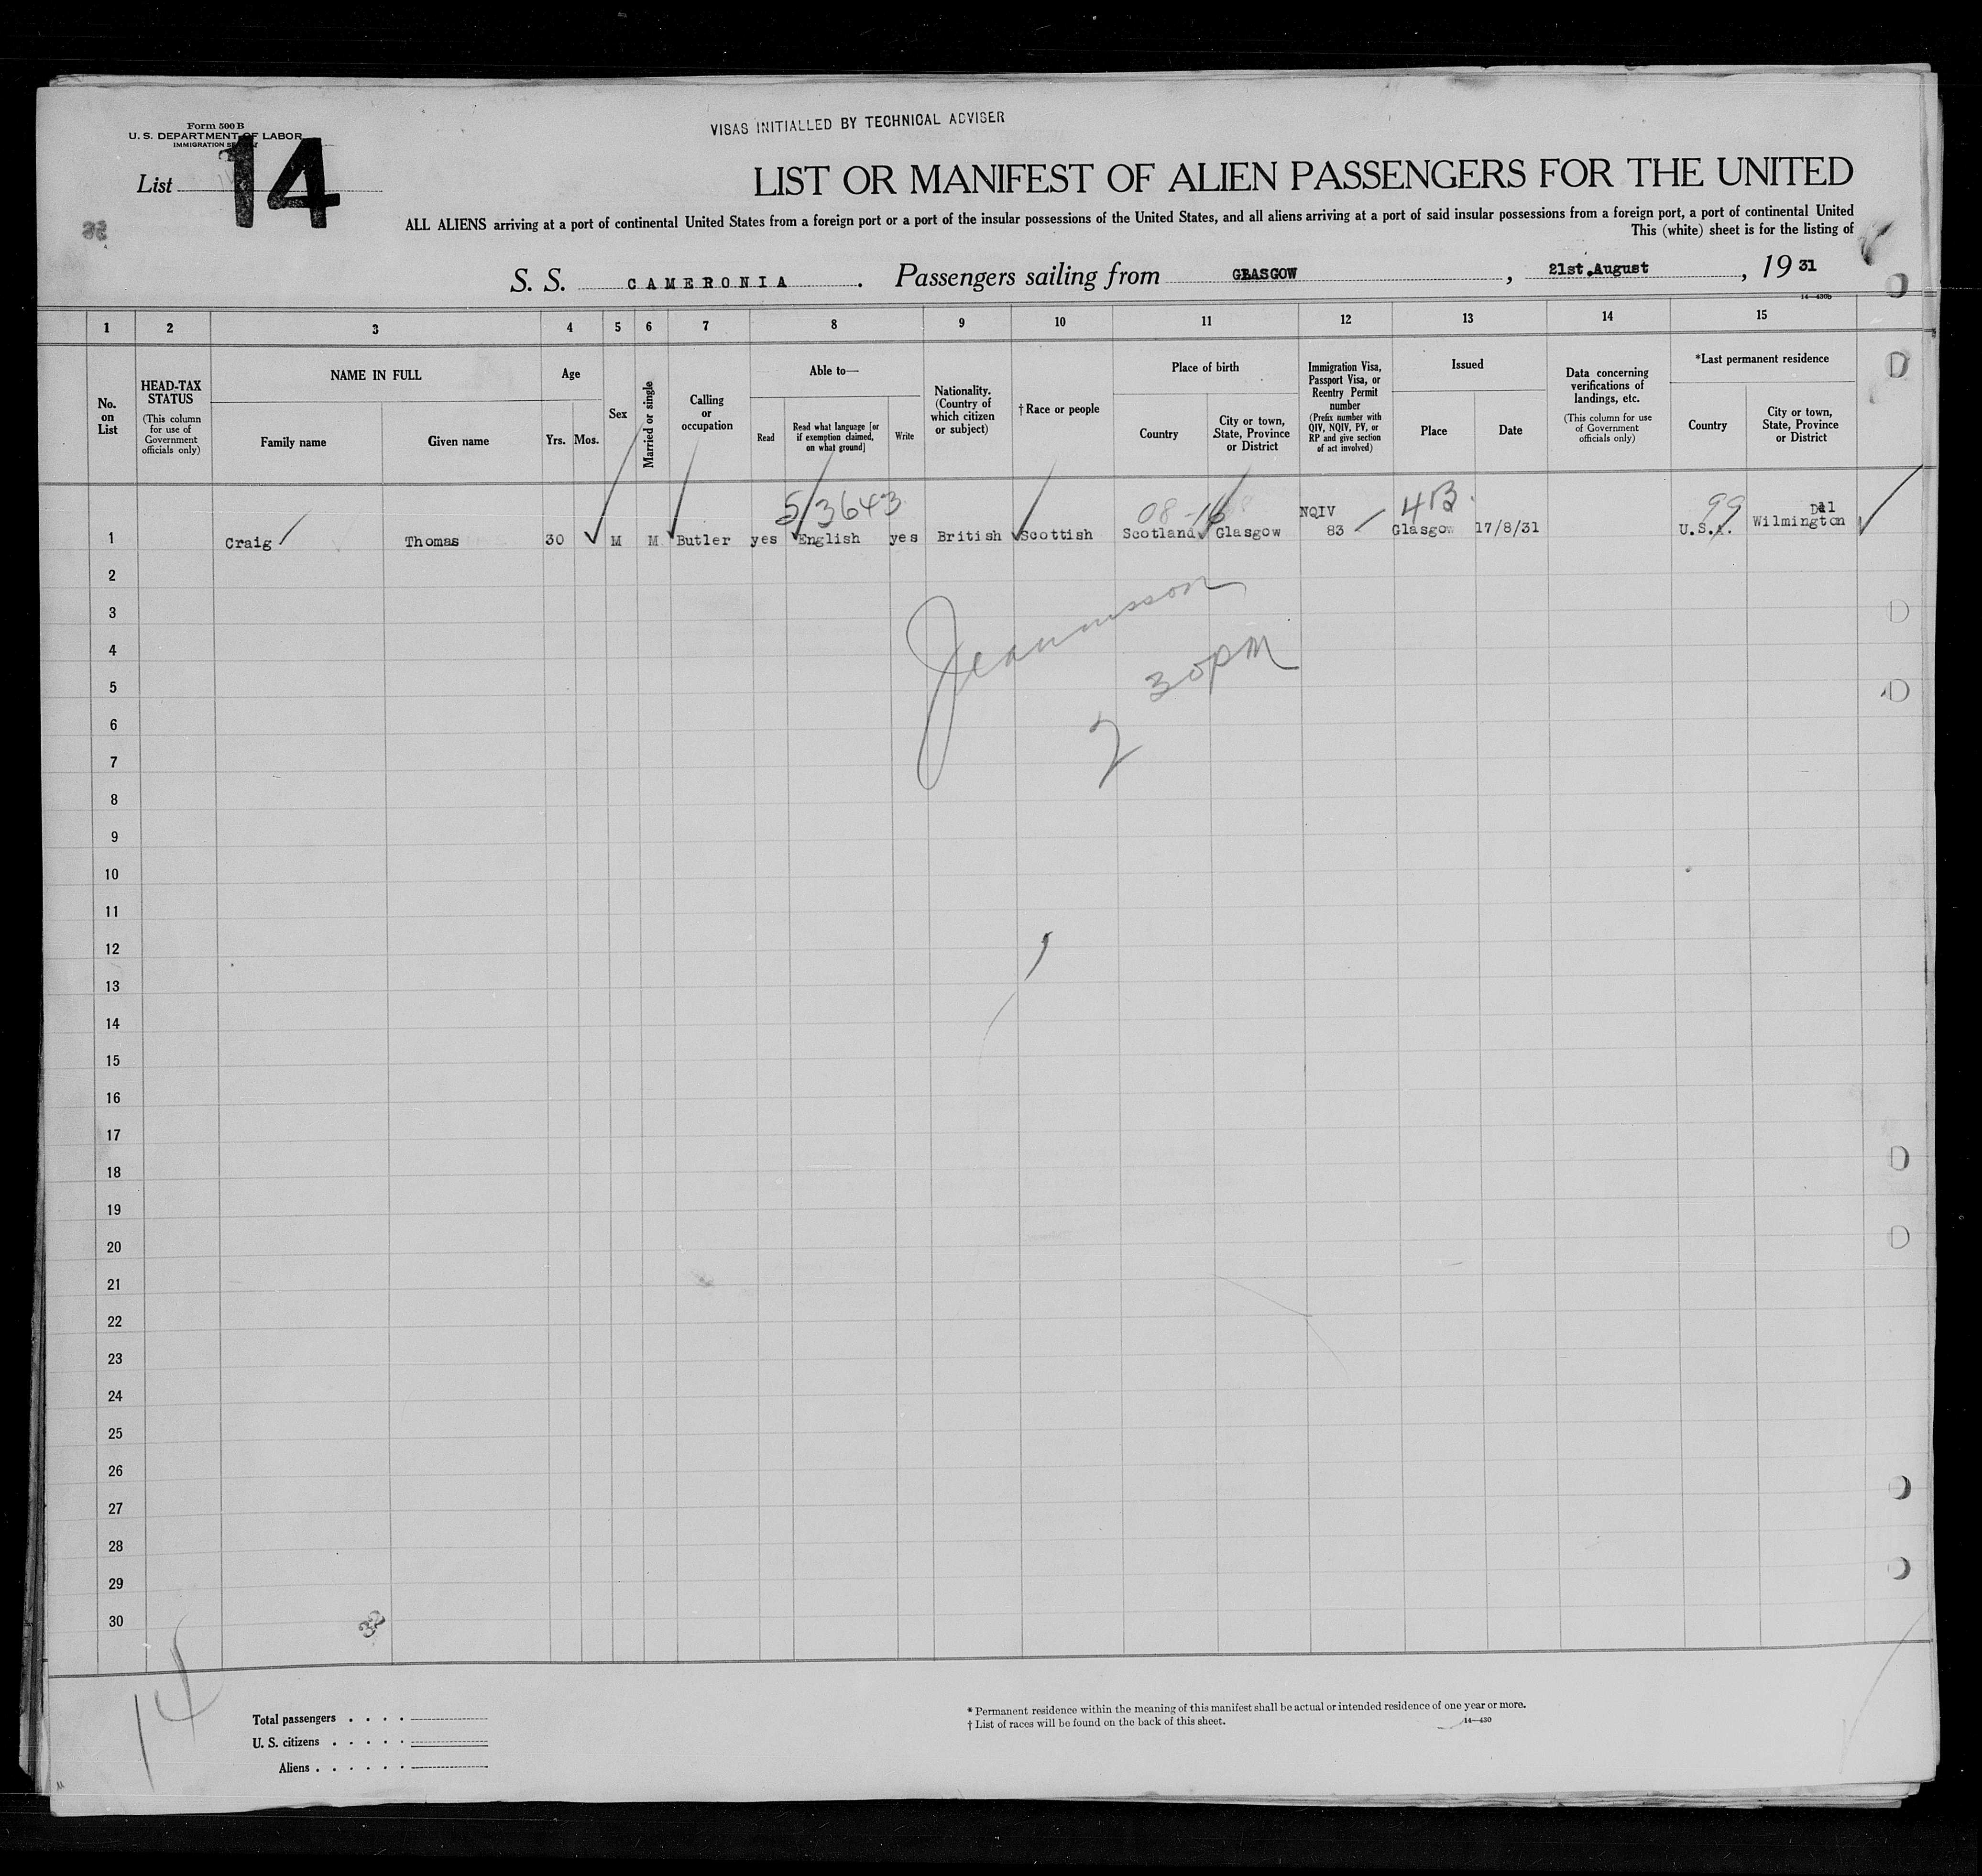 Form 500 B
U. S. DEPARTMENT OF LABOR
IMMIGRATION
List 14
VISAS INITIALLED BY TECHNICAL ADVISER
LIST OR MANIFEST OF ALIEN PASSENGERS FOR THE UNITED
ALL ALIENS arriving at a port of continental United States from a foreign port or a port of the insular possessions of the United States, and all aliens arriving at a port of said insular possessions from a foreign port, a port of continental United
This (white) sheet is for the listing of
S. S. CAMERONIA. Passengers sailing from GLASGOW, 21st.August, 1931
14—430b
1 2 3 4 5 6 7 8 9 10 11 12 13 14 15
No. on List
HEAD-TAX STATUS
(This column for use of Government officials only)
NAME IN FULL
Family name Given name
Age
Yrs. Mos.
Sex
Married or single
Calling or occupation
Able to—
Read
Read what language [or if exemption claimed, on what ground]
Write
Nationality. (Country of which citizen or subject)
†Race or people
Place of birth
Country
City or town, State, Province or District
Immigration Visa, Passport Visa, or Reentry Permit number
(Prefix number with QIV, NQIV, PV, or RP and give section of act involved)
Issued
Place Date
Data concerning verifications of landings, etc.
(This column for use of Government officials only)
*Last permanent residence
Country
City or town, State, Province or District
5/3643 08-16 NQIV 4B 99 Del
1 Craig Thomas 30 M M Butler yes English yes British Scottish Scotland Glasgow 83 Glasgow 17/8/31 U.S.A. Wilmington
2
3
4
5
6
7
8
9
10
11
12
13
14
15
16
17
18
19
20
21
22
23
24
25
26
27
28
29
30
2 30 PM
14
Total passengers . . . .
U. S. citizens . . . . .
Aliens . . . . . .
* Permanent residence within the meaning of this manifest shall be actual or intended residence of one year or more.
† List of races will be found on the back of this sheet.
14—430